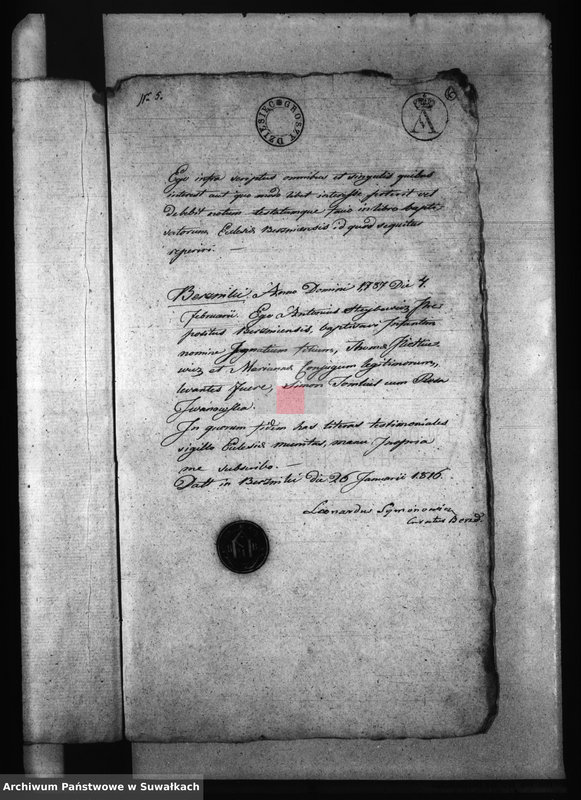 Nr. 5.
DZIESIĘC GROSZY
A
6
Ego infra scriptus omnibus et singulis quibus
interest aut quo modo libet interesse poterit vel
debebit notum testatumque facio in libro bapti-
satorum, Eclesiæ Berznicensis id quod sequitur
reperiri. —
Berzniki. Anno Domini 1787 Die 4.
Februarii Ego Antonius Præ-
positus Berznicensis, baptisavi Infantem
nomine Ignatium filium, Thomæ
wicz et Mariannæ Conjugum legitimorum,
levantes fuere, Simon cum Rosa
Iwanowska.
In quorum fidem has literas testimoniales
sigillo Eclesiæ munitas manu propria
me subscribo. —
Datt in Berzniki die 26 Januarii 1816.
Leonardus Symonowicz
Curatus Berzd.
Archiwum Państwowe w Suwałkach